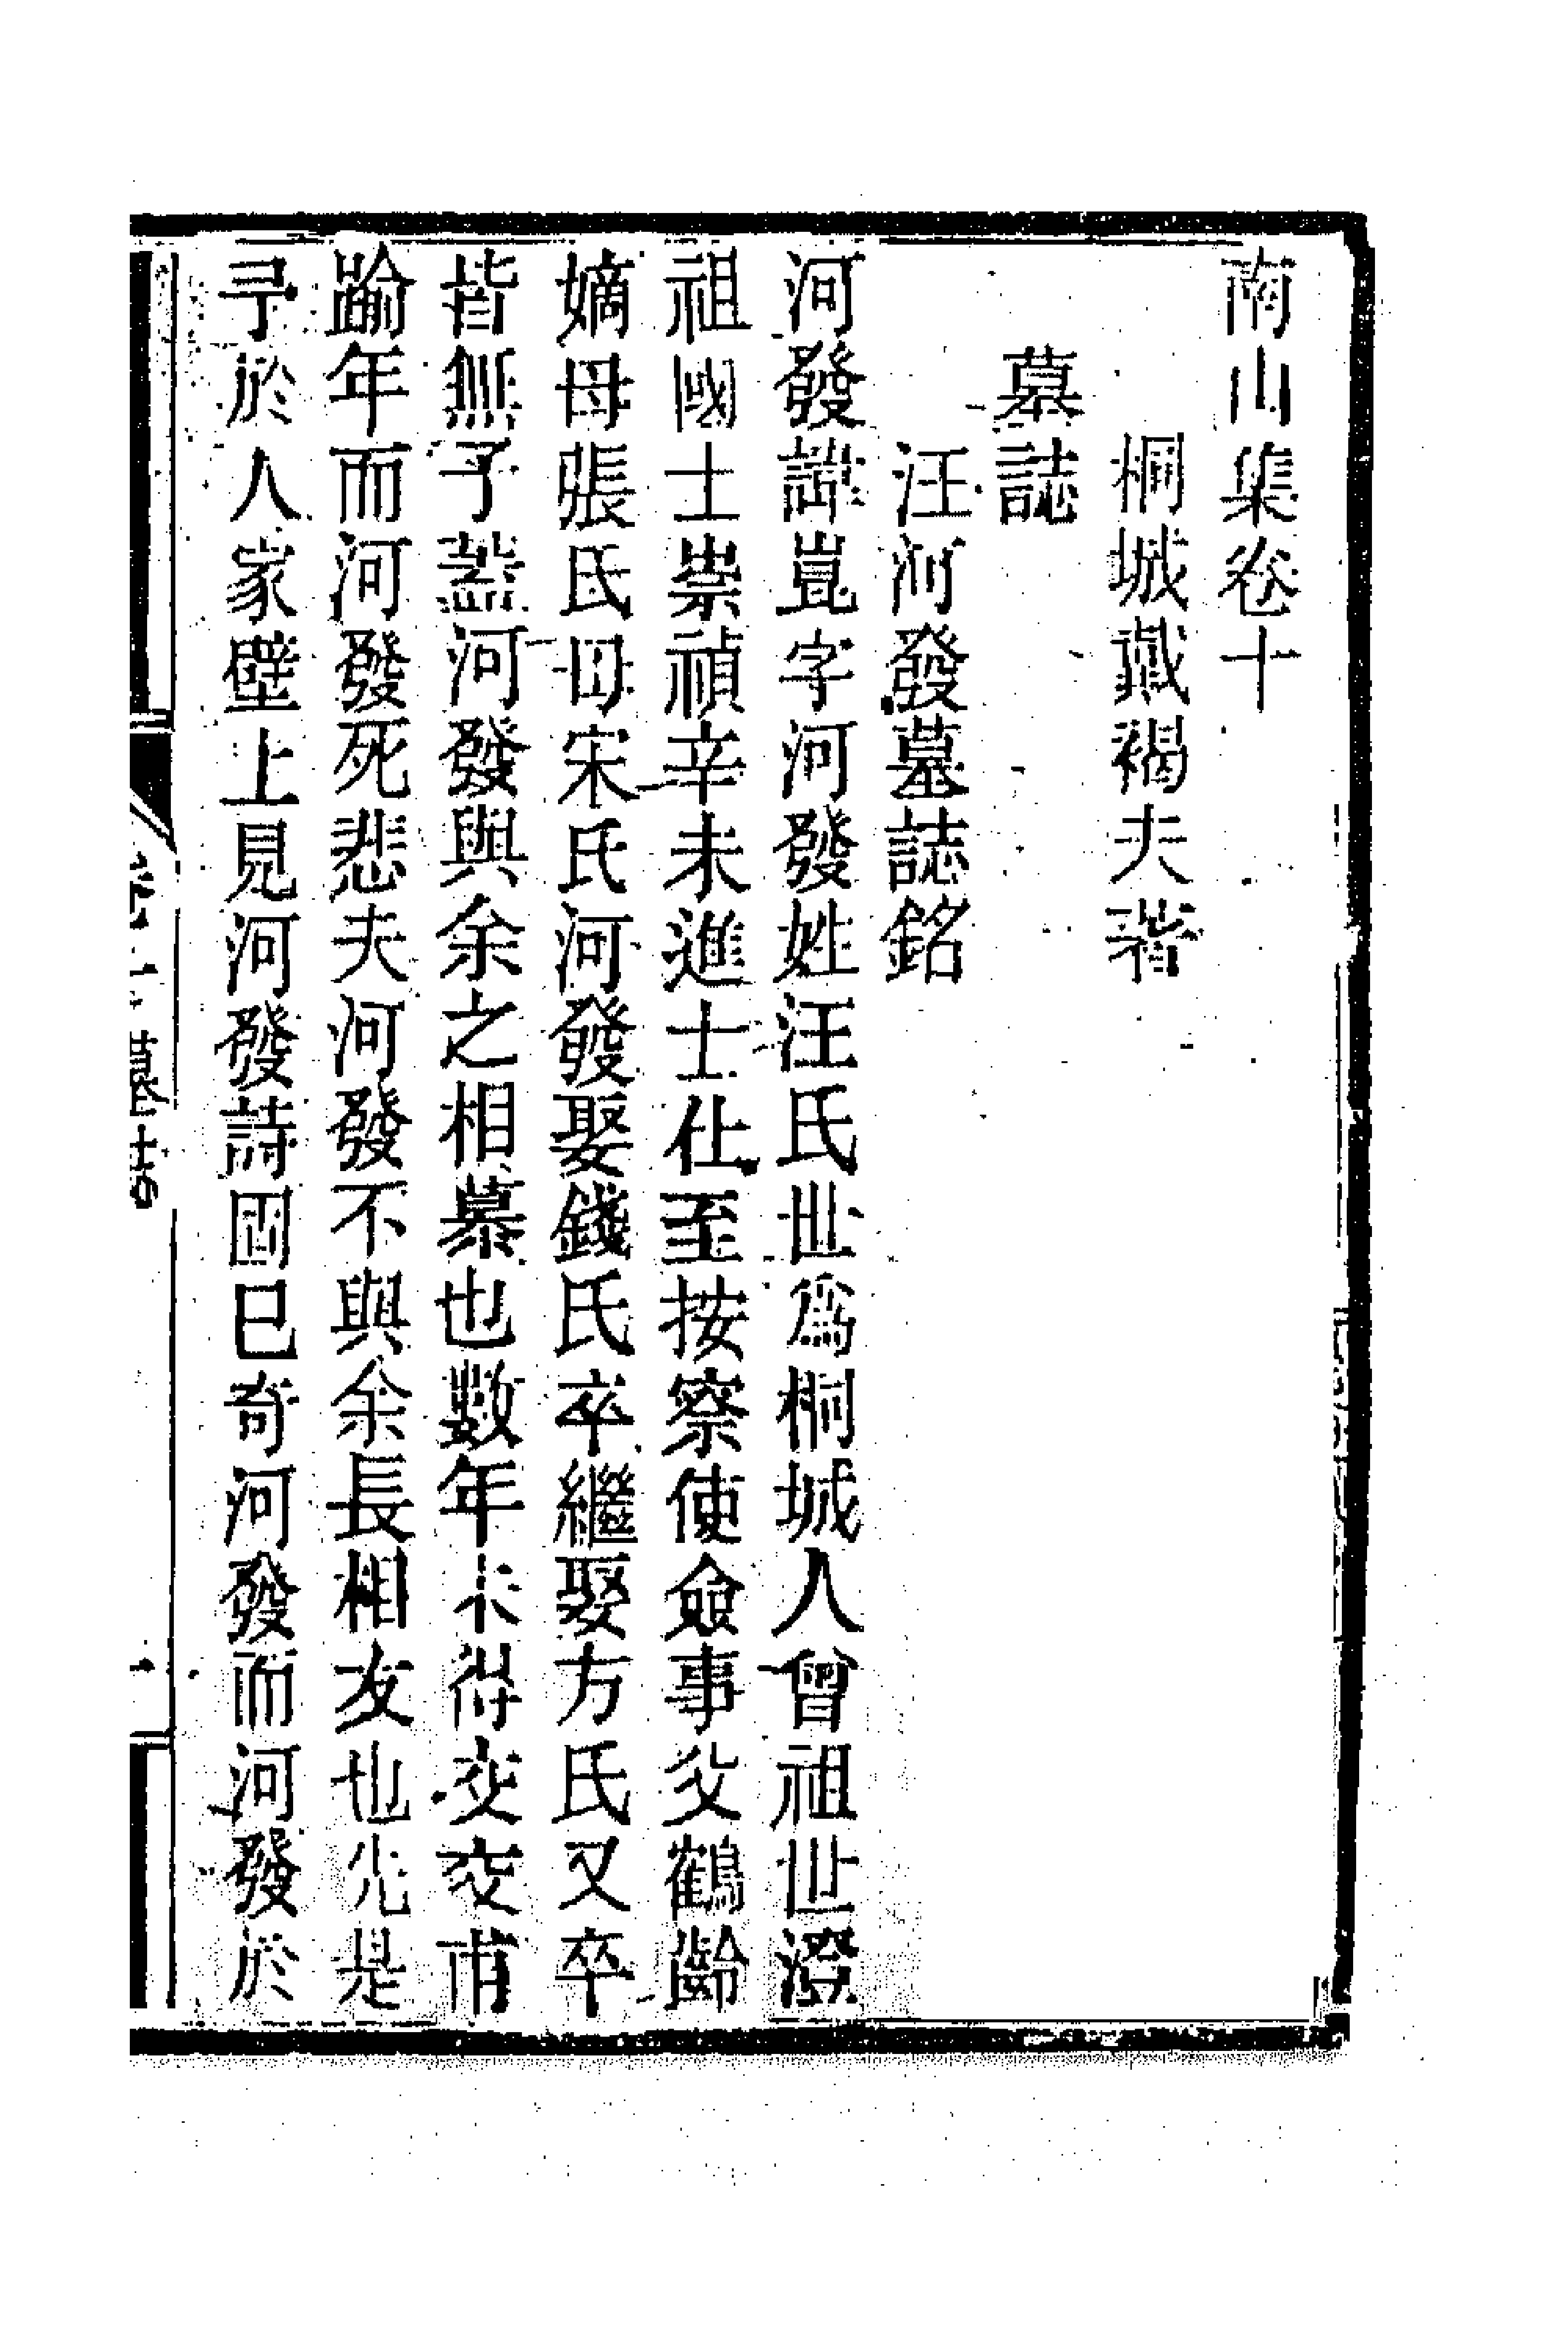 南山集卷十
桐城戴褐夫著
墓誌
汪河發墓誌銘
河發諱崑字河發姓汪氏世爲桐城人曾祖世澄
祖國士崇禎辛未進士仕至按察使僉事父鶴齡
嫡母張氏母宋氏河發娶錢氏卒繼娶方氏又卒
皆無子葢河發與余之相慕也數年未得交交甫
踰年而河發死悲夫河發不與余長相友也先是
予於人家壁上見河發詩固已奇河發而河發於